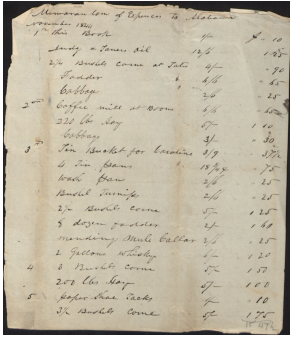 Memorandom of Expences to Alabama
november 184
1st this Book $ - 10
andy & Taners Oil 12/6
2½ Bushels corne at Tates 4/- - 90
Fodder - 65
Cabbag 2/6 - 25
2 Coffee mill at Boons
220 lbs hay 5/- 1 10
Cabbag 3/- - 30
3 Tin Bucket for Caroline 3/9 - 37½
4 Tin pans - 75
wash pan 2/6 - 25
Bushel Turnips 2/6 - 25
2½ Bushels corne 5/- 1 25
8 dozen fodder 2/- 1 60
mending Mule Collar 2/6 - 25
2 Gallons Whisky 6/- 1 20
4 3 Bushels corne 5/- 1 50
200 lbs Hay 5/- 1 00
5 paper Shoe Tacks - 10
3½ Bushels corne 5/- 1 75